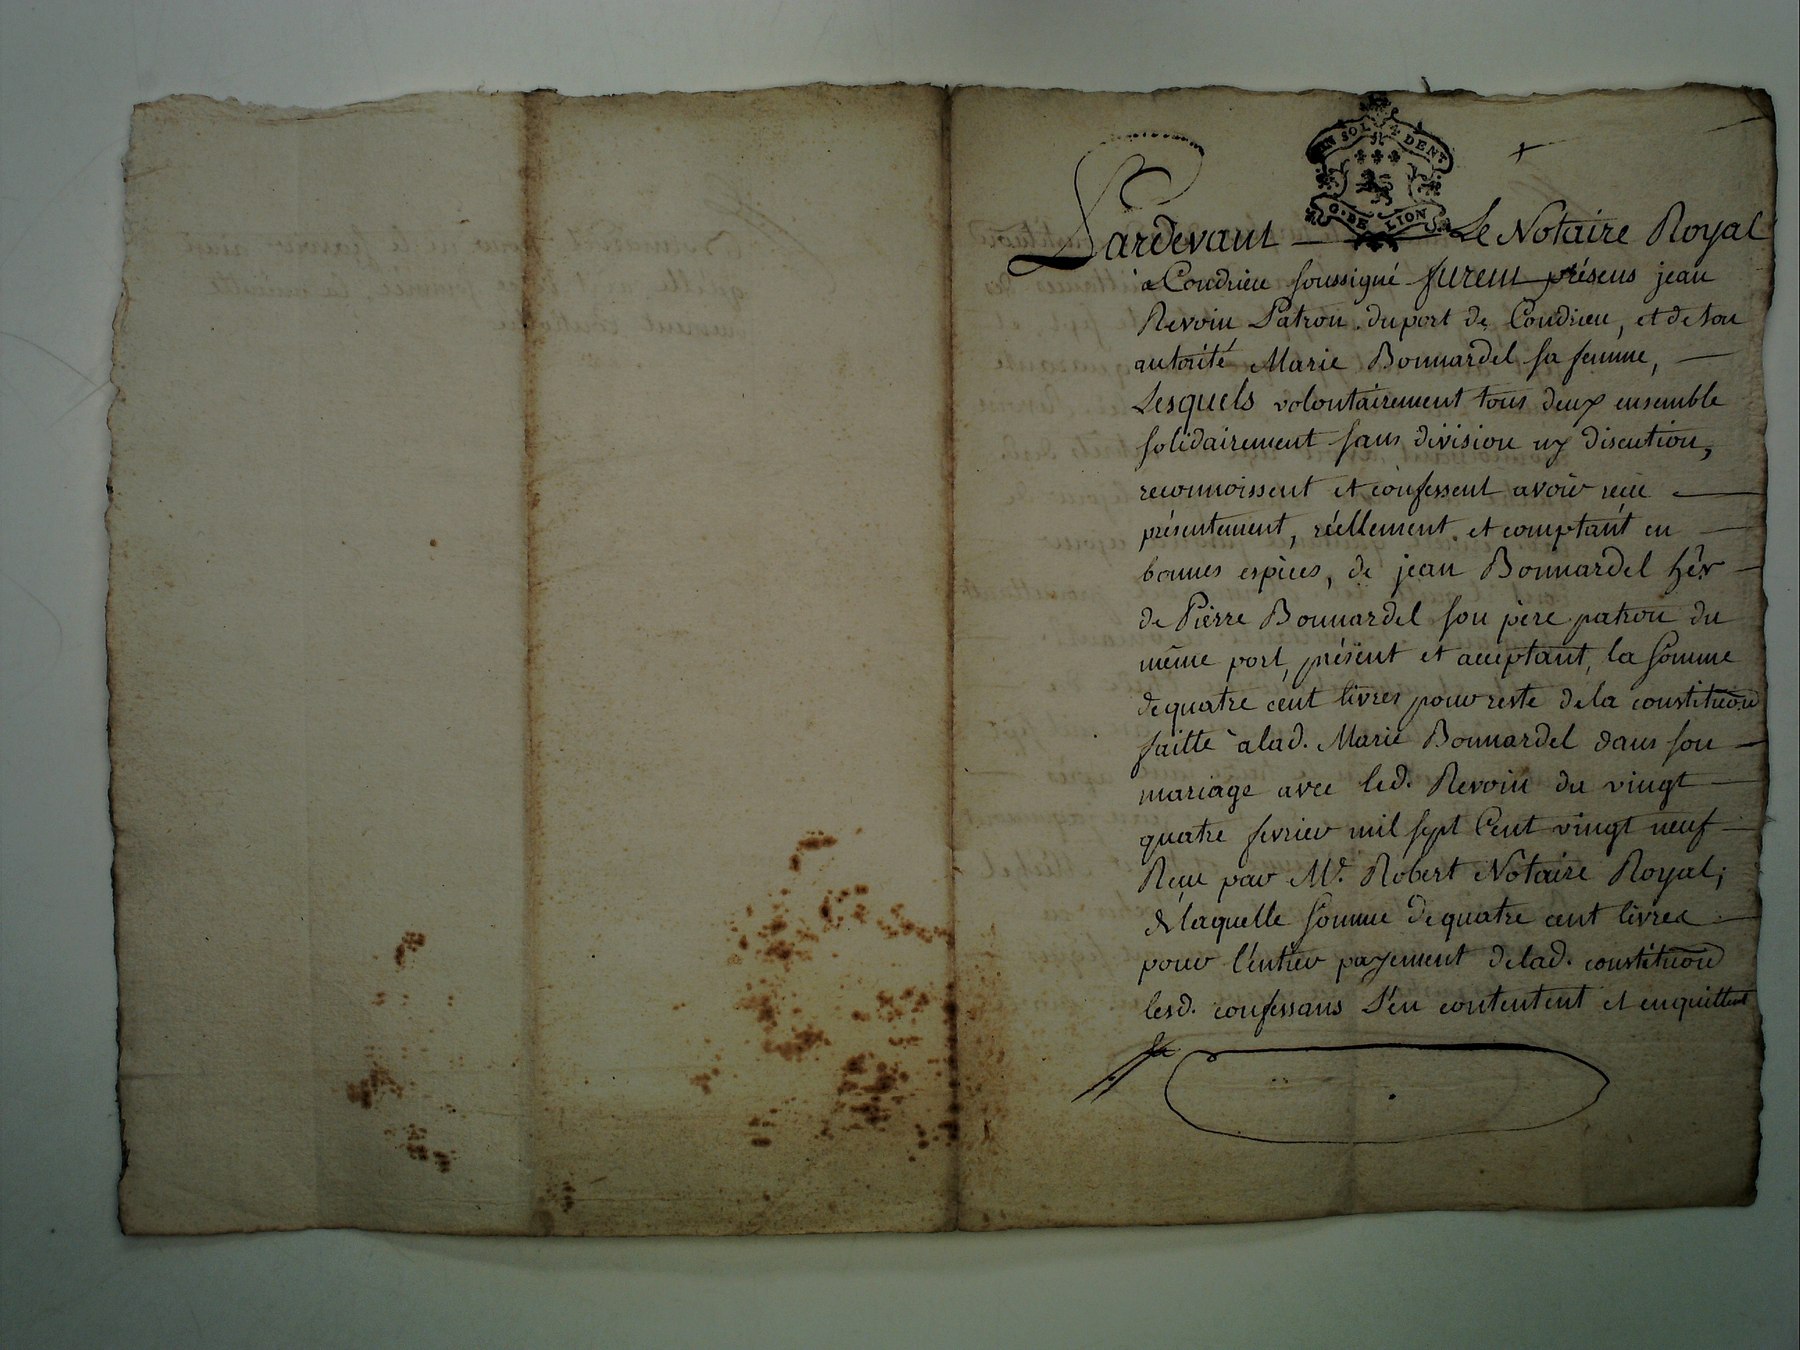 UN SOL 4 DENI
G. DE LION
Pardevant Le Notaire Royal
à Condrieu soussigné furent présens jean
Revoin Patron du port de Condrieu, et de son
autorité Marie Bonnardel sa femme,
Lesquels volontairement tous deux ensemble
solidairement sans division ny discution,
reconnoissent et confessent avoir reçu
présentement, réellement et comptant en
bonnes espèces, de jean Bonnardel hér
de Pierre Bonnardel son père patron du
même port, présent et acceptant, la somme
de quatre cent livres pour reste de la constitu͠on
faitte à lad. Marie Bonnardel dans son
mariage avec led. Revoin du vingt
quatre fevrier mil sept Cent vingt neuf
Reçu par Me. Robert Notaire Royal;
de laquelle somme de quatre cent livres
pour l'entier payement de lad. constitu͠on
lesd. confessans s'en contentent et enquittent